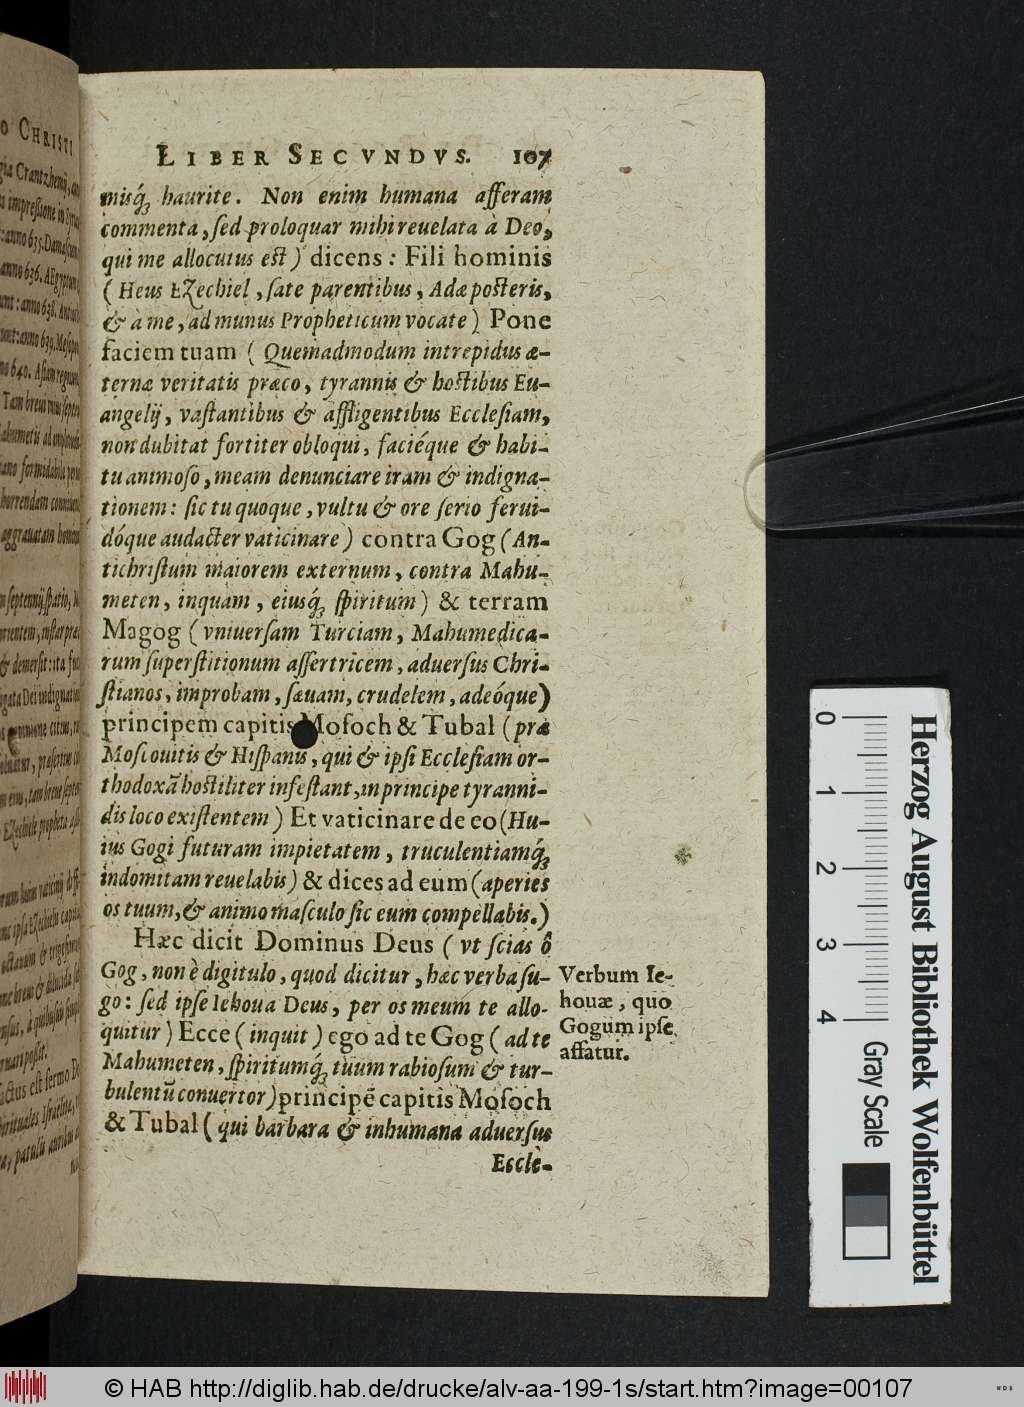 LIBER SECVNDVS. 107
misq́ꝫ haurite. Non enim humana afferam
commenta, ſed proloquar mihi reuelata à Deo,
qui me allocutus eſt) dicens: Fili hominis
(Heus EZechiel, ſate parentibus, Adæ poſteris,
& à me, ad munus Propheticum vocate) Pone
faciem tuam (Quemadmodum intrepidus æ-
ternæ veritatis præco, tyrannis & hoſtibus Eu-
angelij, vaſtantibus & affligentibus Eccleſiam,
non dubitat fortiter obloqui, faciéque & habi-
tu animoſo, meam denunciare iram & indigna-
tionem: ſic tu quoque, vultu & ore ſerio ferui-
dóque audacter vaticinare) contra Gog (An-
tichriſtum maiorem externum, contra Mahu-
meten, inquam, eiusq́ꝫ ſpiritum) & terram
Magog (vniuerſam Turciam, Mahumedica-
rum ſuperſtitionum aſſertricem, aduerſus Chri-
ſtianos, improbam, ſæuam, crudelem, adeóque)
principem capitis Moſoch & Tubal (præ
Moſcouitis & Hiſpanis, qui & ipſi Eccleſiam or-
thodoxã hoſtiliter infeſtant, in principe tyranni-
dis loco exiſtentem) Et vaticinare de eo (Hu-
ius Gogi futuram impietatem, truculentiamq́ꝫ
indomitam reuelabis) & dices ad eum (aperies
os tuum, & animo maſculo ſic eum compellabis.)
Hæc dicit Dominus Deus (vt ſcias ô
Gog, non è digitulo, quod dicitur, hæc verba ſu-
go: ſed ipſe Iehoua Deus, per os meum te allo-
quitur) Ecce (inquit) ego ad te Gog (ad te
Mahumeten, ſpiritumq́ꝫ tuum rabioſum & tur-
bulentũ conuertor) principẽ capitis Moſoch
& Tubal (qui barbara & inhumana aduerſus
Eccle-
Verbum Ie-
houæ, quo
Gogum ipſe
affatur.
O CHRISTI
Herzog August Bibliothek Wolfenbüttel
0 1 2 3 4
Gray Scale
© HAB http://diglib.hab.de/drucke/alv-aa-199-1s/start.htm?image=00107